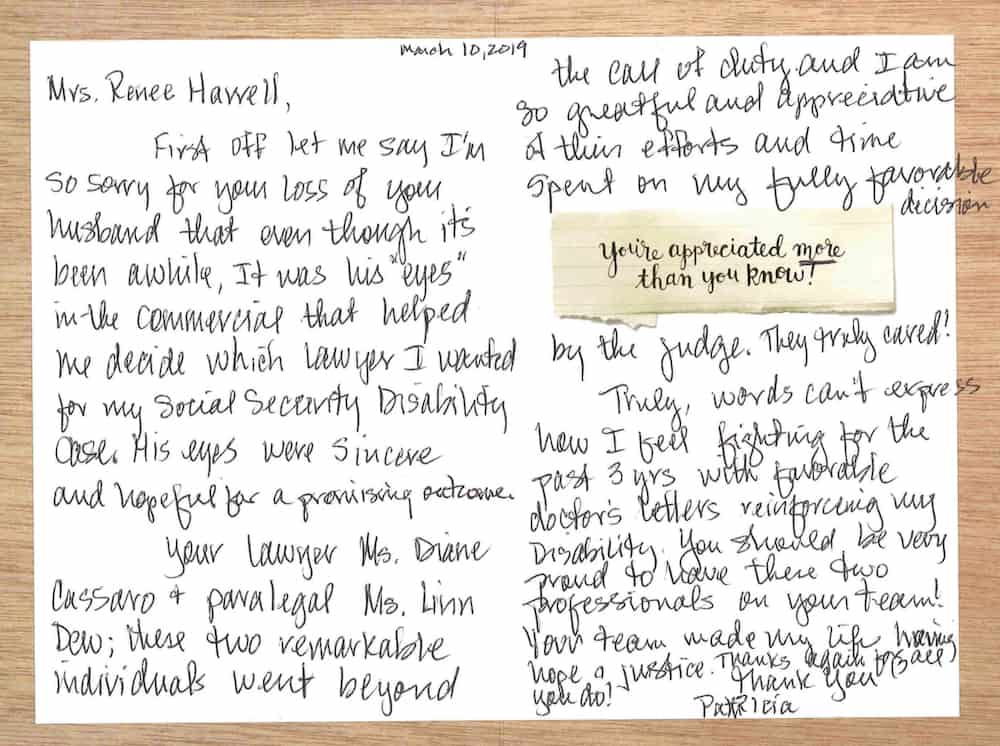 March 10, 2019
Mrs. Renee Harrell,
First off let me say I'm
so sorry for your loss of your
husband that even though its
been awhile, It was his "eyes"
in the commercial that helped
me decide which lawyer I wanted
for my Social Security Disability
Case. His eyes were sincere
and hopeful for a promising outcome.
Your lawyer Ms. Diane
Cassaro + paralegal Ms. Linn
Dew; these two remarkable
individuals went beyond
the call of duty and I am
so greatful and appreciative
of their efforts and time
spent on my fully favorable
decision
You're appreciated more
than you know!
by the judge. They truly cared!
Truly, words can't express
how I feel fighting for the
past 3 yrs with favorable
doctor's letters reinforcing my
Disability. You should be very
proud to have these two
professionals on your team!
Your team made my life having
hope & justice. Thanks again for all
you do! Thank You
Patricia